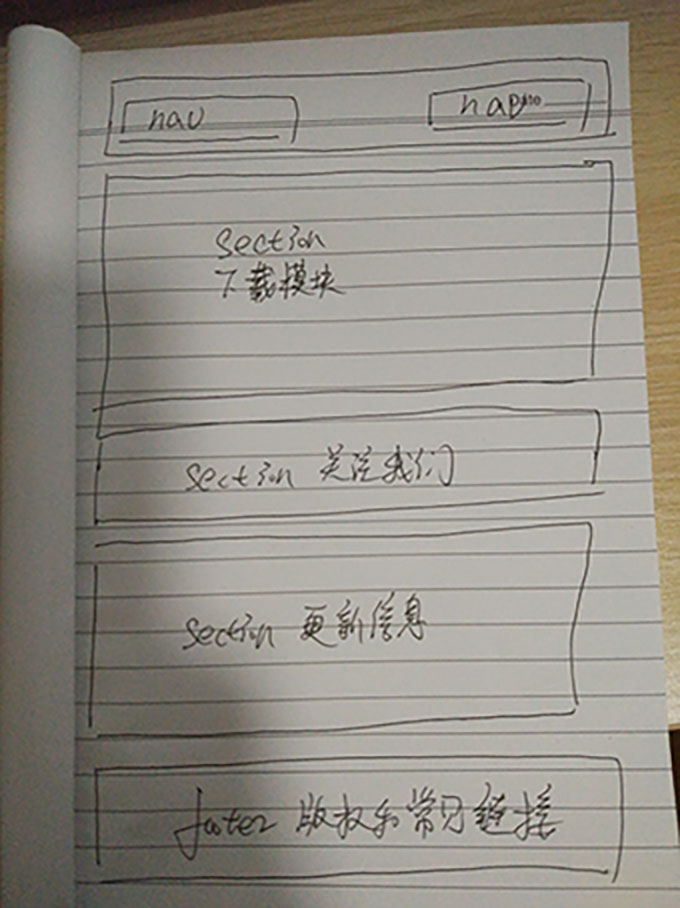 nav
nav
section
下载模块
section 关注我们
section 更新信息
footer 版权和常见链接